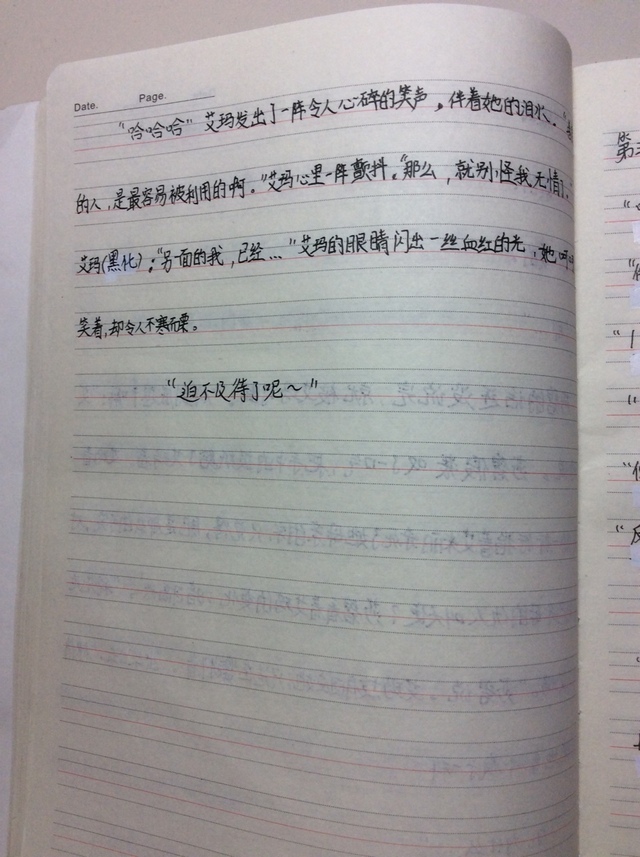 Date. Page.
"哈哈哈"艾玛发出了一阵令人心碎的笑声。伴着她的泪水。"
的人,是最容易被利用的啊。"艾玛心里一阵颤抖。"那么,就别怪我无情了。
艾玛(黑化):"另面的我,已经..."艾玛的眼睛闪出一丝血红的光,她
笑着,却令人不寒而栗。
"迫不及待了呢~"
第